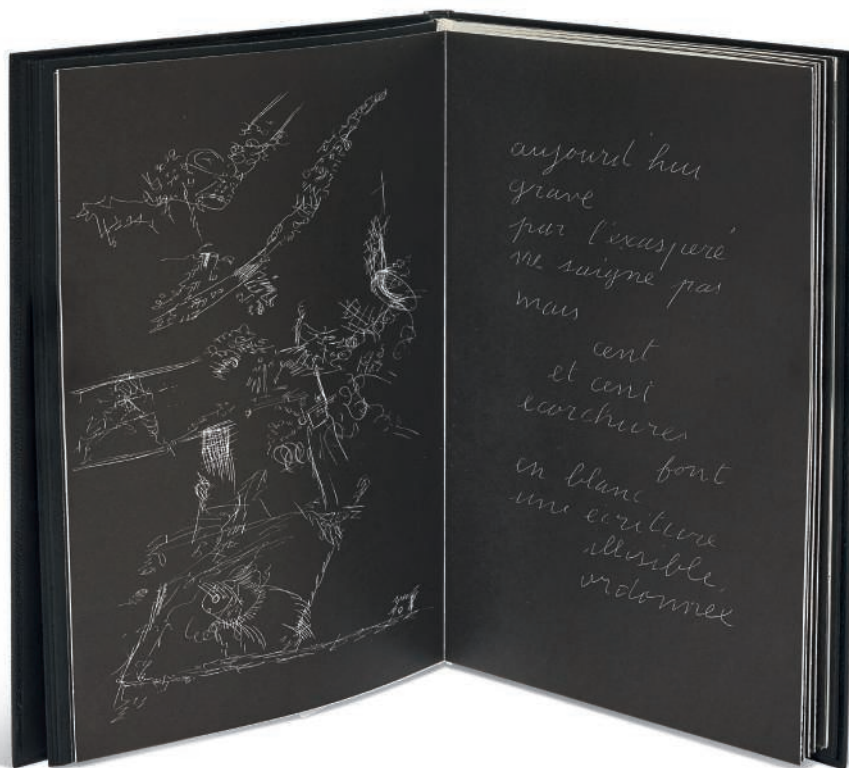 aujourd'hui
grave
par l'exaspéré
ne saigne pas
mais
cent
et cent
écorchures
font
en blanc
une écriture
illisible,
ordonnée